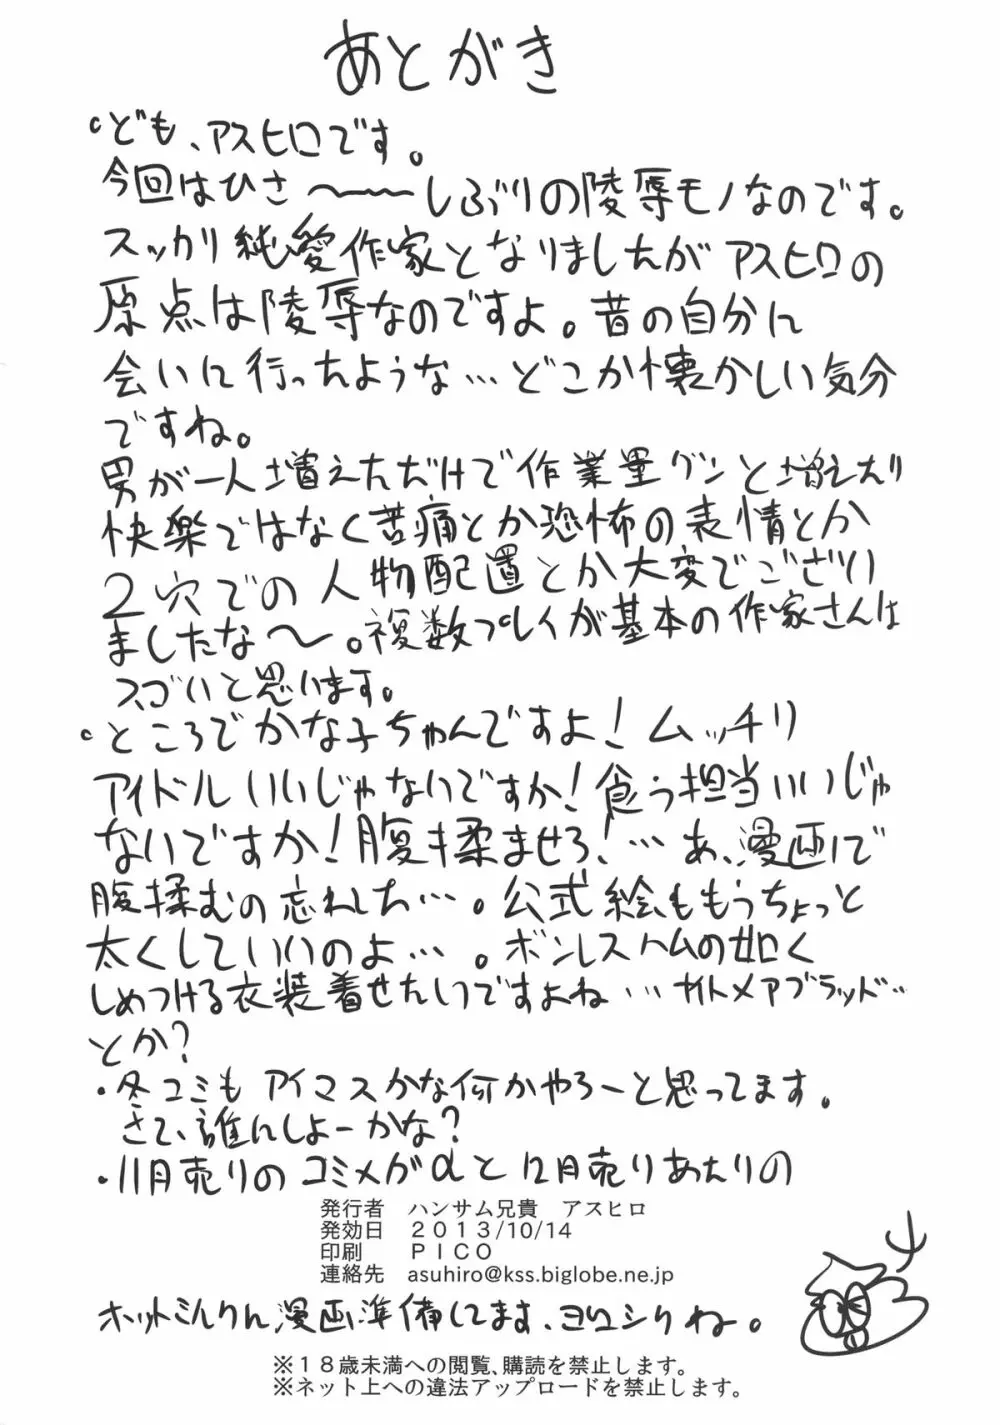 あとがき
・ども、アスヒロです。
今回はひさ〜〜〜しぶりの陵辱モノなのです。
スッカリ純愛作家となりましたがアスヒロの
原点は陵辱なのですよ。昔の自分に
会いに行ったような…どこか懐かしい気分
ですね。
男が一人増えただけで作業量グンと増えたり
快楽ではなく苦痛とか恐怖の表情とか
2穴での人物配置とか大変でござい
ましたな〜。複数プレイが基本の作家さんは
スゴいと思います。
・ところでかな子ちゃんですよ!ムッチリ
アイドルいいじゃないですか!食う担当いいじゃ
ないですか!腹揉ませろ!…あ、漫画で
腹揉むの忘れした…。公式絵ももうちょっと
太くしていいのよ…。ボンレスハムの如く
しめつける衣装着せたいですよね…ナイトメアブラッド…
とか?
・冬コミもアイマスかな何かやろーと思ってます。
さて、誰んしよーかな?
・11月売りのコミメガαと12月売りあたりの
発行者 ハンサム兄貴 アスヒロ
発効日 2013/10/14
印刷 PICO
連絡先 asuhiro@kss.biglobe.ne.jp
ホットミルクん漫画準備してます、ヨロシクね。
※18歳未満への閲覧、購読を禁止します。
※ネット上への違法アップロードを禁止します。